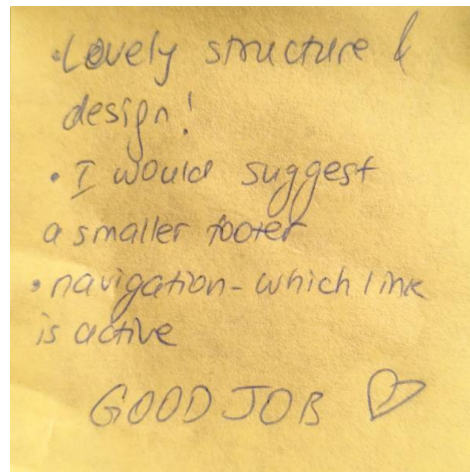 • Lovely structure &
design!
• I would suggest
a smaller footer
• navigation - which link
is active
GOOD JOB ♡